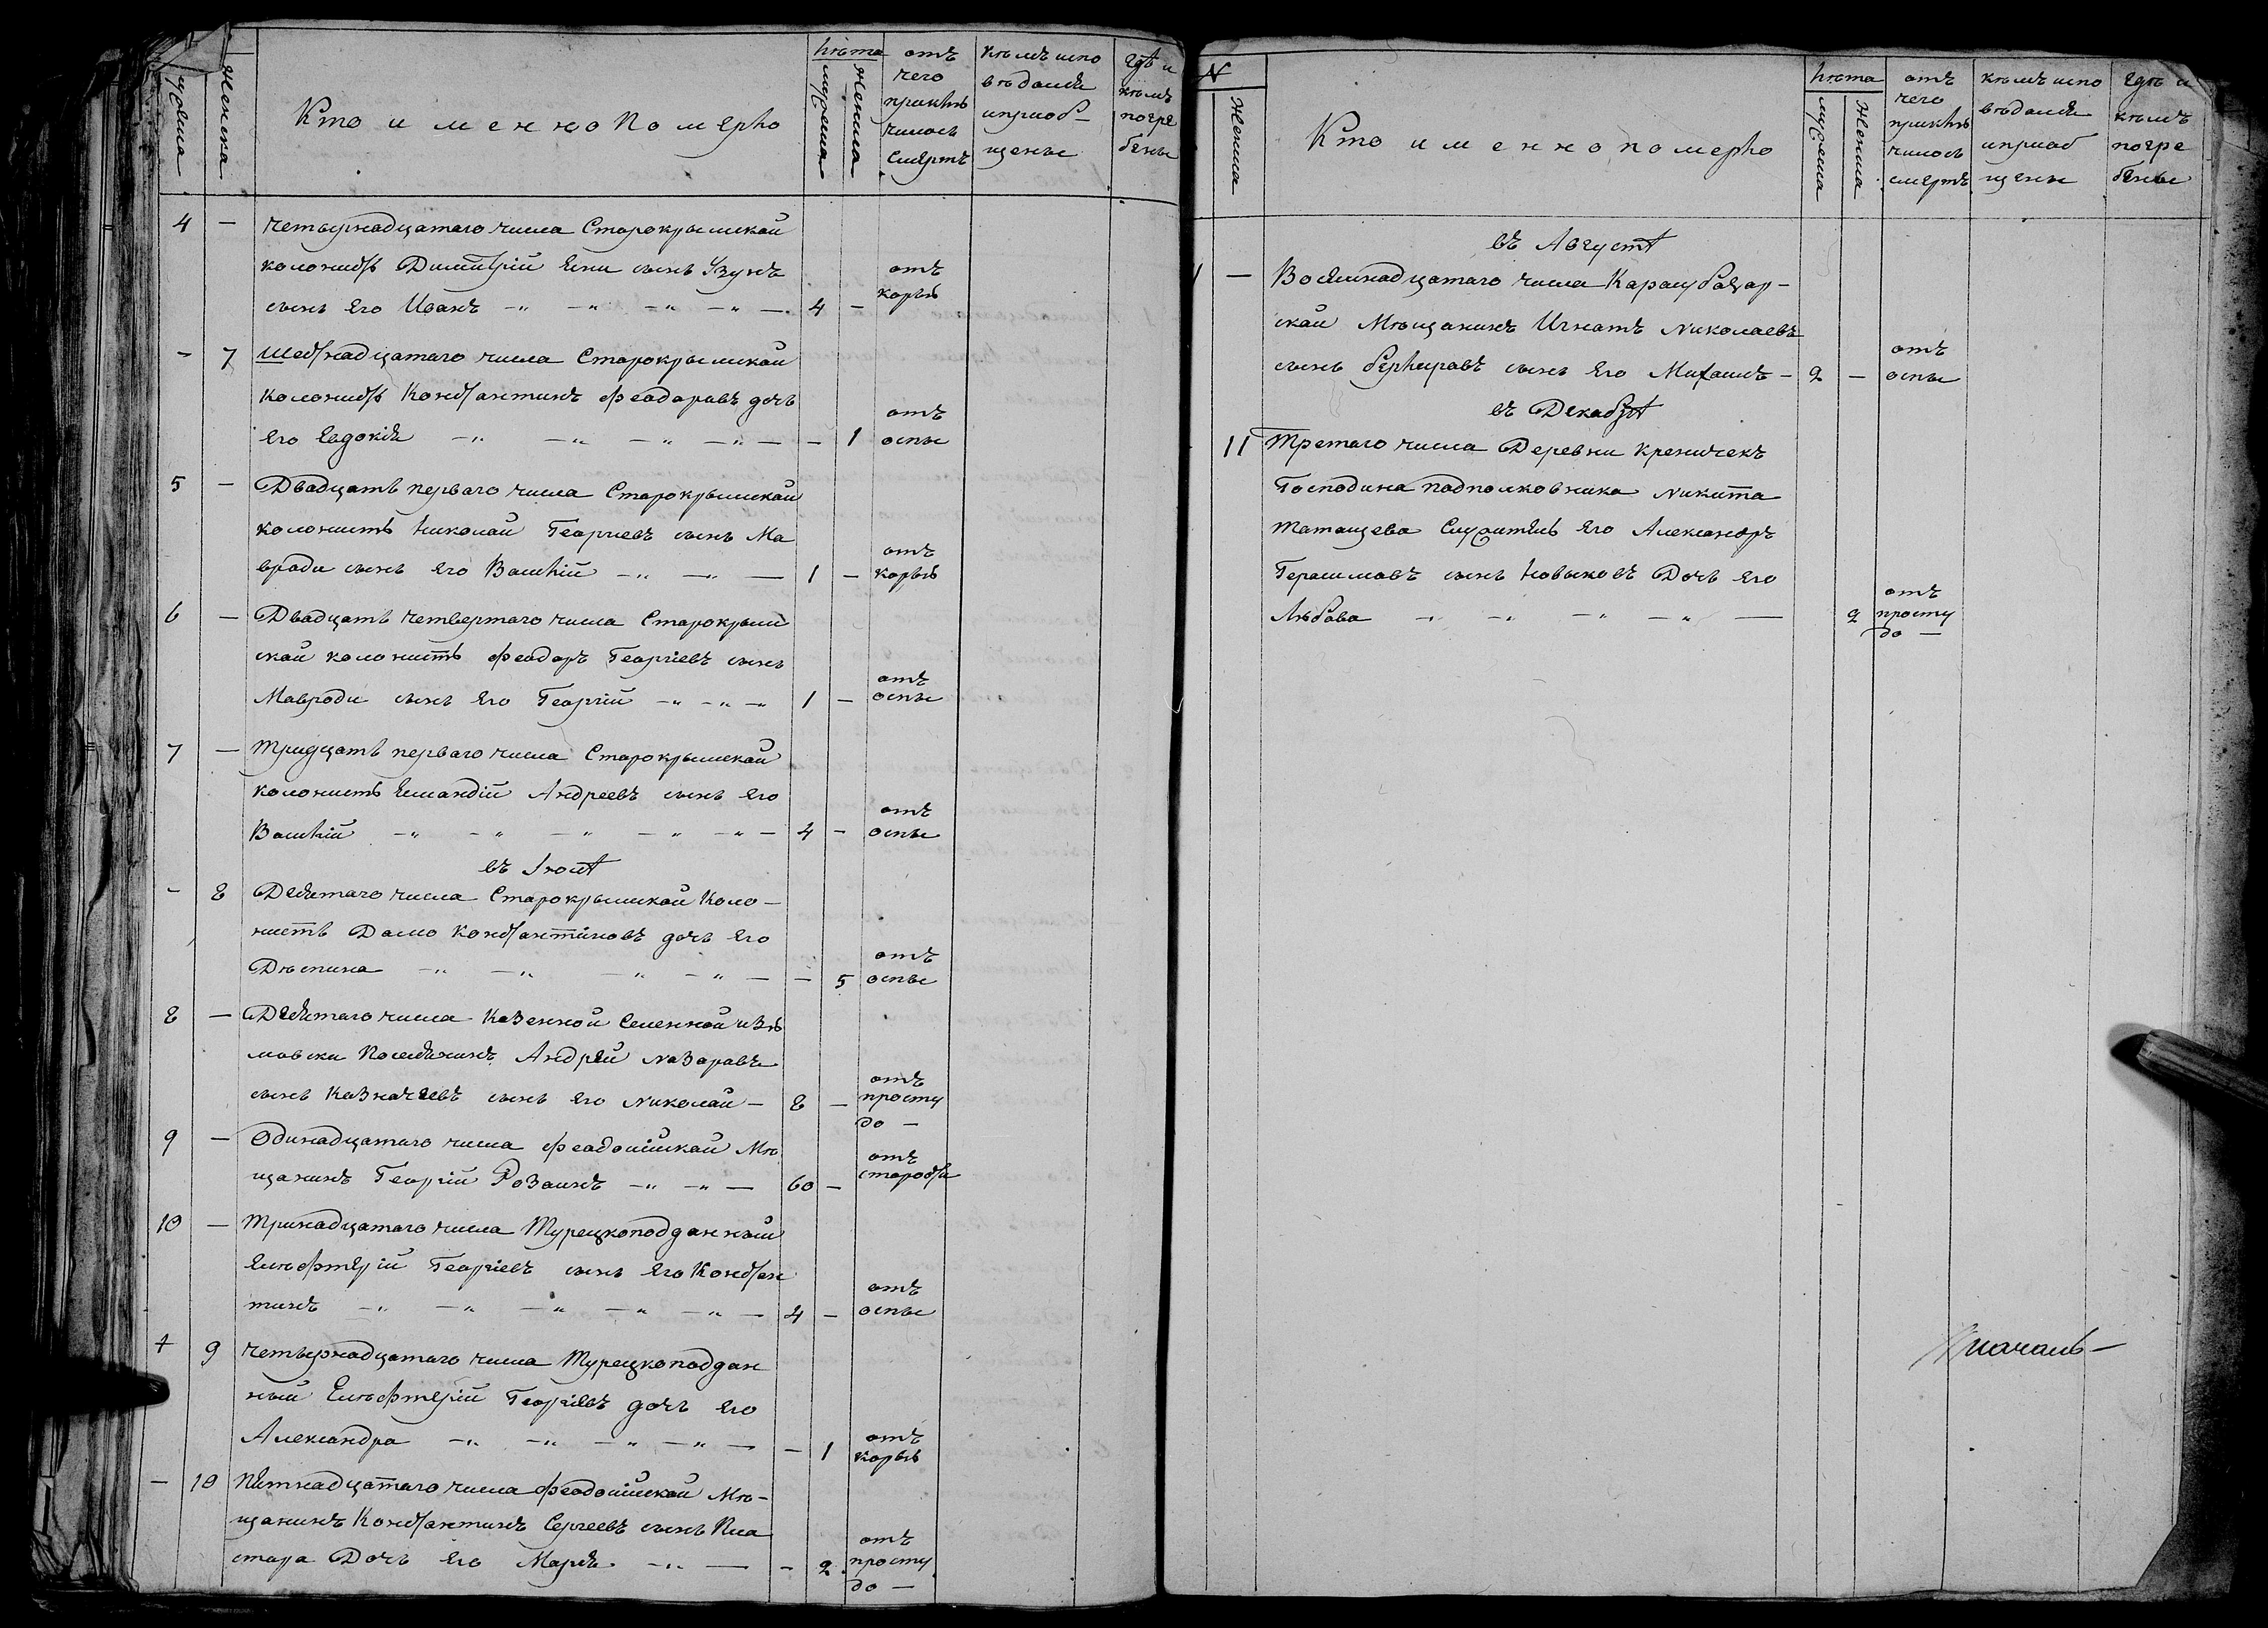 мужеска
женска
Кто именно померъ
Лѣта
мужеска
женска
отъ
чего
приклю
чилось
смерть
кѣмъ испо
вѣданы
и приоб-
щены
гдѣ и
кѣмъ
погре
бены
4 — Четырнадцатаго числа Старокрымскай
колонистъ Димитрій Яни сынъ Узунъ
сынъ его Иванъ 4 — отъ корьи
— 7 Шестнадцатаго числа Старокрымскай
колонистъ Константинъ Феодоравъ дочь
его Евдокіѧ — 1 отъ оспы
5 — Двадцать перваго числа Старокрымскай
колонистъ Николай Георгиевъ сынъ Ма
вроди сынъ его Василій 1 — отъ корьи
6 — Двадцать четвертаго числа Старокрым
скай колонистъ Феодоръ Георгіевъ сынъ
Мавроди сынъ его Георгій 1 — отъ оспы
7 — Тридцать перваго числа Старокрымскай
колонистъ Андреевъ сынъ его
Василій 4 — отъ оспы
въ Іюлѣ
— 8 Девѧтаго числа Старокрымскай Коло-
нистъ Дамо Константиновъ дочь его
Дѣспина — 5 отъ оспы
8 — Девѧтаго числа Казенной Селенной изъ
мовски Поселѧнинъ Андрей Назаравъ
сынъ Казначеевъ сынъ его Николай — 8 — отъ просту до —
9 — Одинадцатаго числа Феодосійскай Мѣ
щанинъ Георгій 60 — отъ старости
10 — Тринадцатаго числа Турецкоподданный
Елѣфтерій Георгіевъ сынъ его Констан
тинъ 4 — отъ оспы
9 Четырнадцатаго числа Турецкоподдан
ный Елѣфтерій Георгіевъ дочь его
Александра — 1 отъ корьи
— 10 Пѧтнадцатаго числа Феодосійскай Мѣ-
щанинъ Константинъ Сергеевъ сынъ Пиа
стара Дочь его Маріѧ — 2 отъ просту до —
N
женска
Кто именно померъ
Лѣта
мужеска
женска
отъ
чего
приклю
чилось
смерть
кѣмъ испо
вѣданы
и приоб
щены
гдѣ и
кѣмъ
погре
бены
въ Августѣ
— Восемнадцатаго числа Карасубазар-
скай Мѣщанинъ Игнатъ Николаевъ
сынъ сынъ его Михаилъ — 2 — отъ оспы
въ Декабрѣ
11 Третаго числа Деревни Креничекъ
Господина подполковника Никита
Татищева Служитель его Александръ
Герасимовъ сынъ Новыковъ Дочь его
Любава 2 отъ просту до —